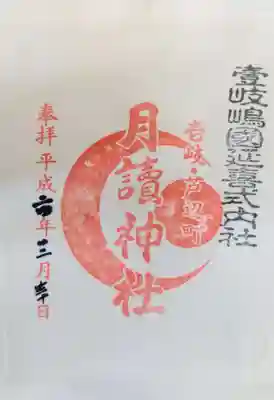 壹岐嶋國延喜式内社
壱岐・芦辺町
月讀神社
奉拝 平成年十二月日